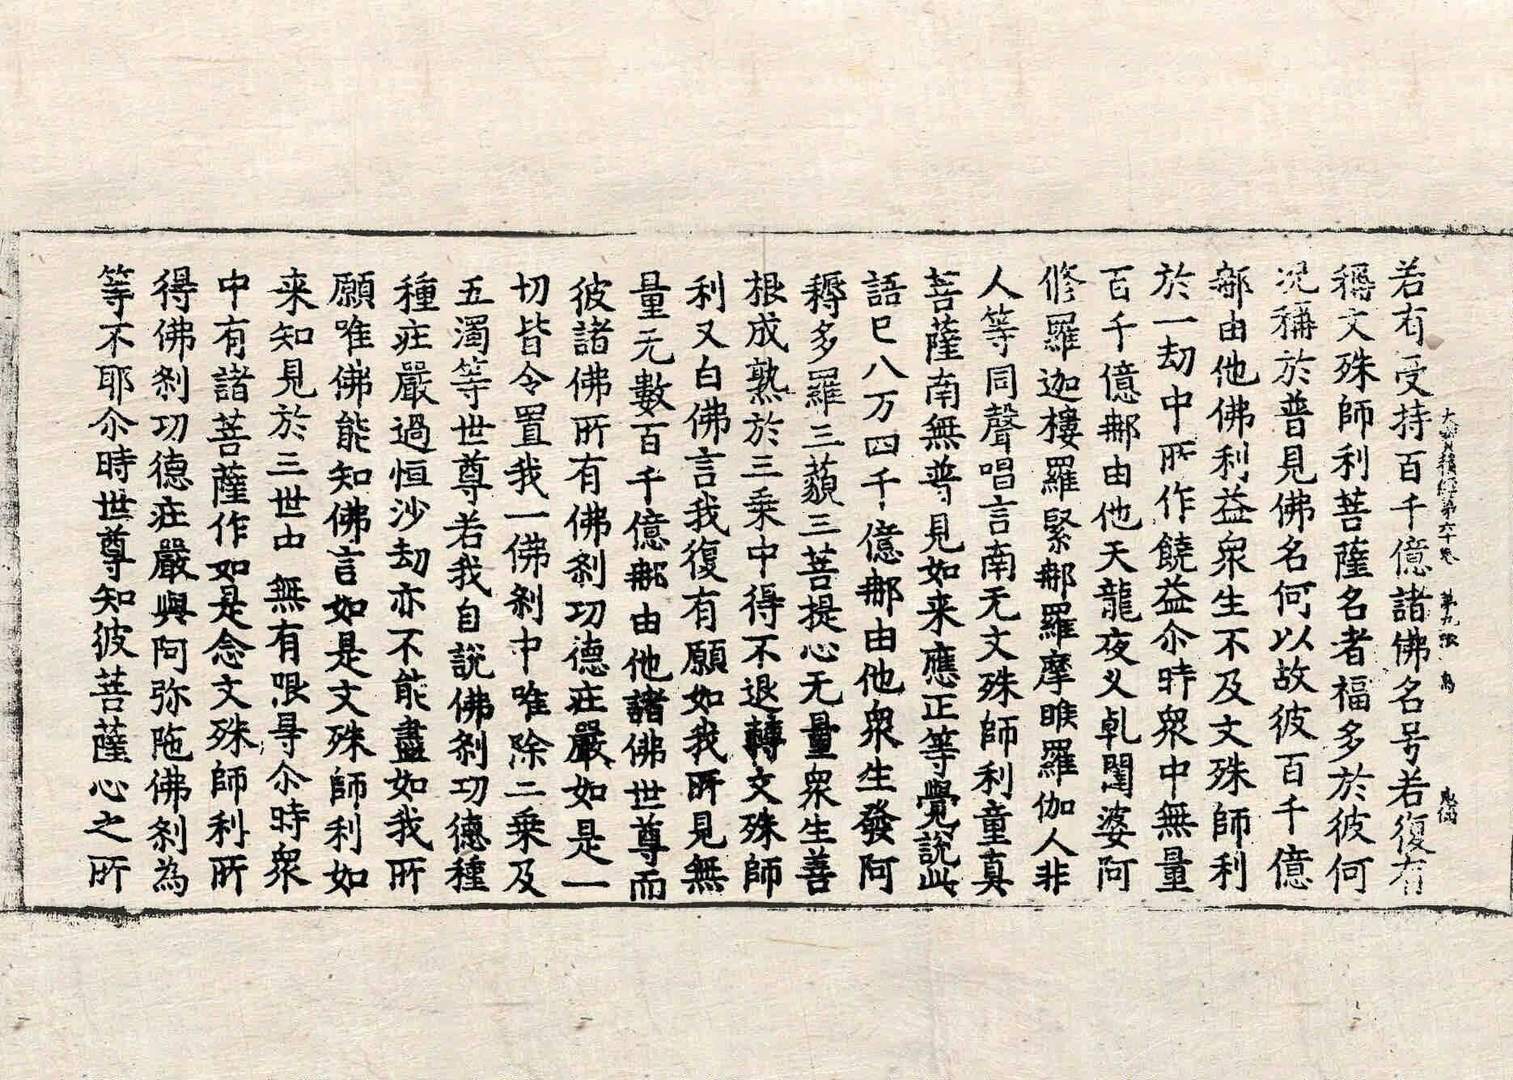 大寶積經第六十卷　第九張　鳥
若有受持百千億諸佛名号若復有
稱文殊師利菩薩名者福多於彼何
况稱於普見佛名何以故彼百千億
那由他佛利益衆生不及文殊師利
於一劫中所作饒益尒時衆中無量
百千億那由他天龍夜义乹闥婆阿
修羅迦樓羅緊那羅摩睺羅伽人非
人等同聲唱言南无文殊師利童真
菩薩南無普見如来應正等覺說此
語已八万四千億那由他衆生發阿
耨多羅三藐三菩提心无量衆生善
根成熟於三乗中得不退轉文殊師
利又白佛言我復有願如我所見無
量无數百千億那由他諸佛世尊而
彼諸佛所有佛刹功德庄嚴如是一
切皆令置我一佛刹中唯除二乗及
五濁等世尊若我自說佛刹功德種
種庄嚴過恒沙劫亦不能盡如我所
願唯佛能知佛言如是文殊師利如
来知見於三世中無有限㝵尒時衆
中有諸菩薩作如是念文殊師利所
得佛刹功德庄嚴與阿弥陁佛刹為
等不耶尒時世尊知彼菩薩心之所